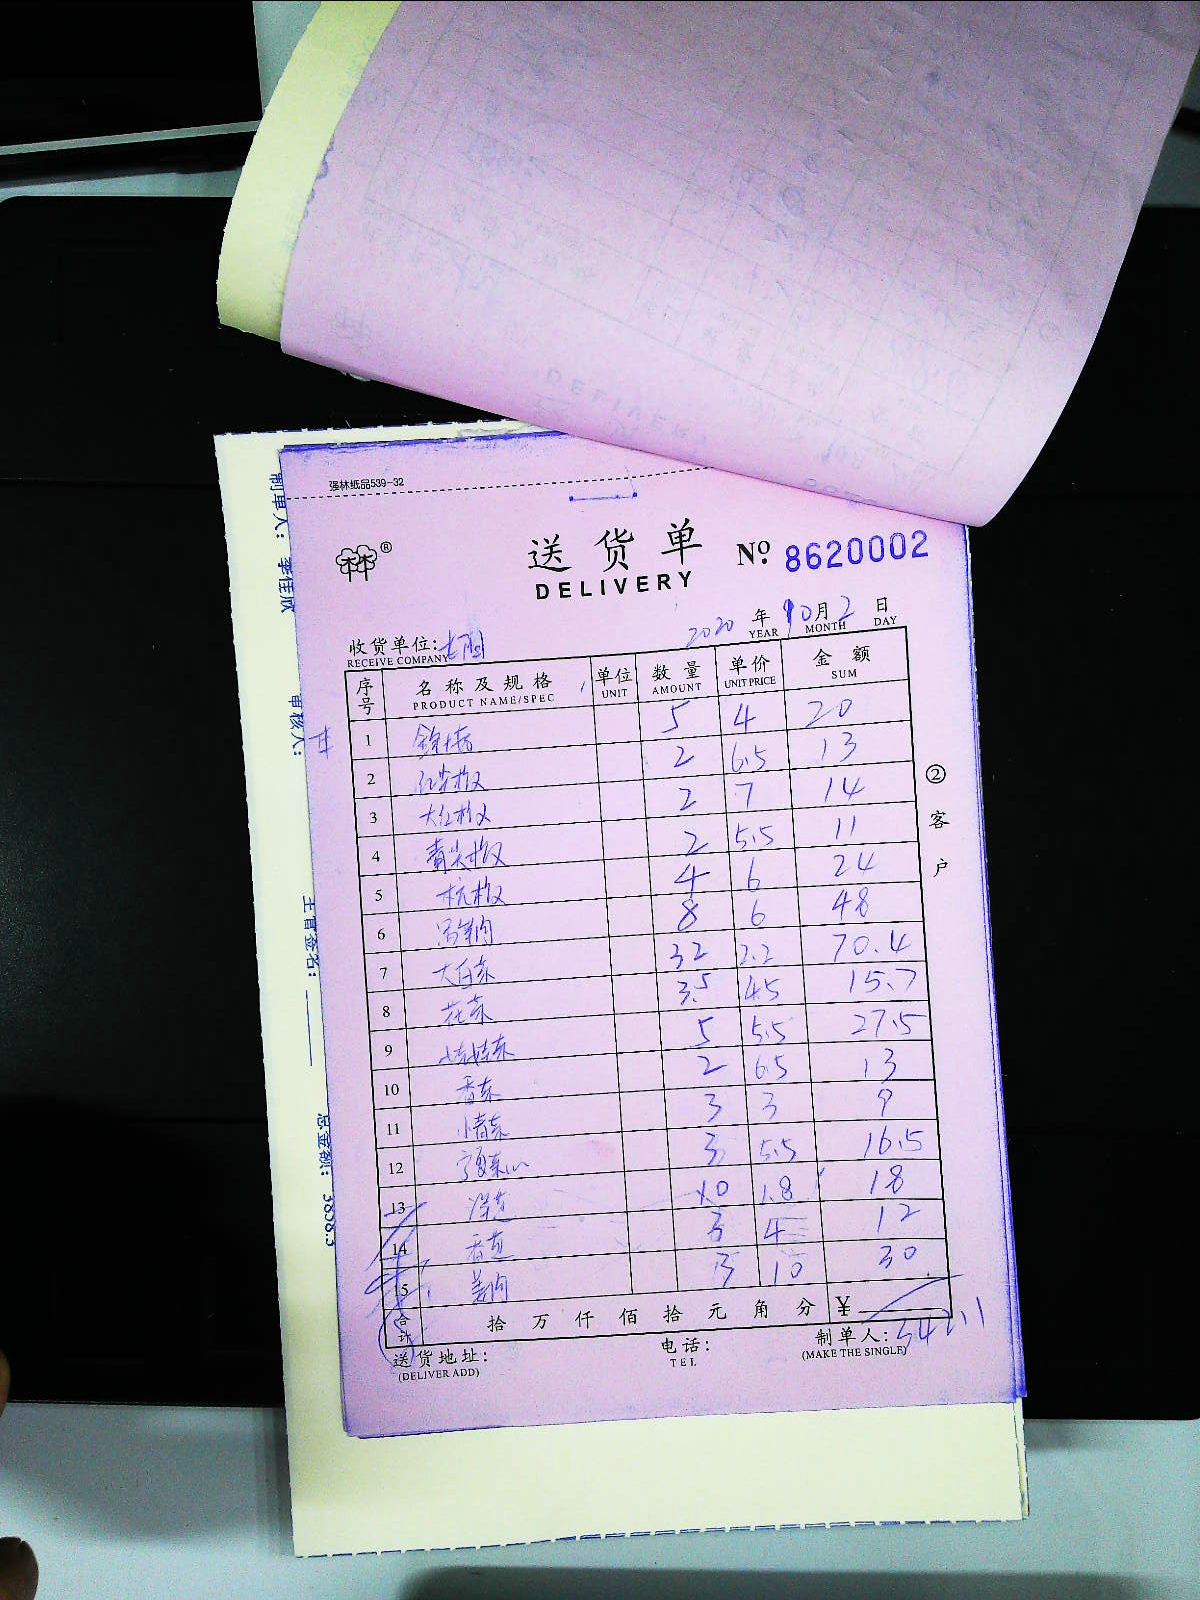 强林纸品539-32
®
送货单 Nº. 8620002
DELIVERY
2020 年 10月 2 日
YEAR MONTH DAY
收货单位:
RECEIVE COMPANY
序号 名称及规格 单位 数量 单价 金额
PRODUCT NAME/SPEC UNIT AMOUNT UNIT PRICE SUM
1 5 4 20
2 红尖椒 2 6.5 13
3 大红椒 2 7 14
4 青尖椒 2 5.5 11
5 杭椒 4 6 24
6 8 6 48
7 大白菜 32 2.2 70.4
8 花菜 3.5 4.5 15.7
9 5 5.5 27.5
10 香菜 2 6.5 13
11 3 3 9
12 3 5.5 16.5
13 洋芋 10 1.8 18
14 3 4 12
15 3 10 30
合计 拾万仟佰拾元角分 ¥
542.1
送货地址: 电话: 制单人:
(DELIVER ADD) TEL (MAKE THE SINGLE)
②客户
制单人: 李佳欣
审核人:
主管签名:
总金额: 3858.3